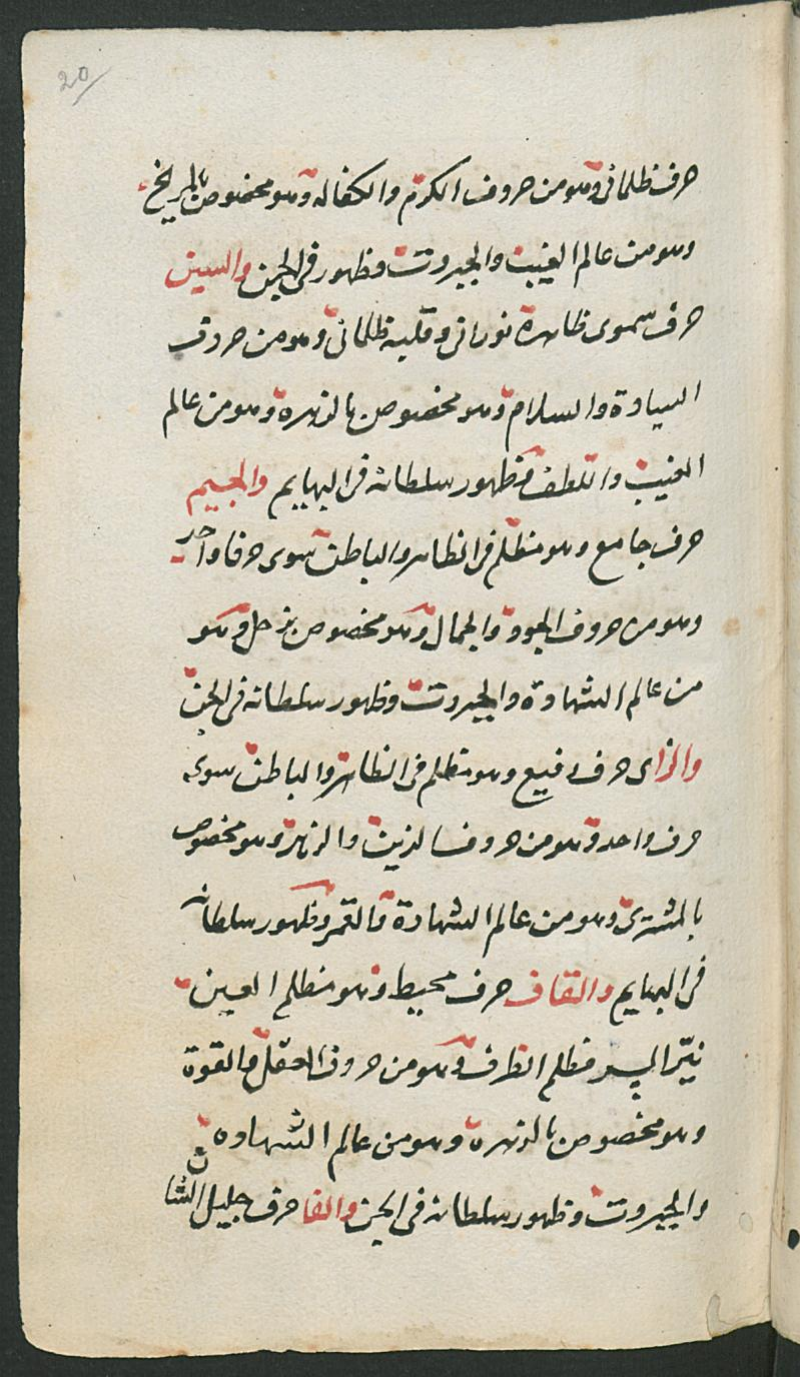 20
حرف ظلمانى وهو من حروف الكرم والكفاله وهو مخصوص بالمريخ
وهو من عالم الغيب والجبروت وظهور فى الجن والسين
حرف سموى ظاهرة نورانى وقلبه ظلمانى وهو من حروف
السيادة والسلام وهو مخصوص بالزهره وهو من عالم
الغيب واللطف وظهور سلطانه فى البهايم والجيم
حرف جامع وهو مظلم فى الظاهر والباطن سوى حرفا واحد
وهو من حروف الجود والجمال وهو مخصوص بزحل وهو
من عالم الشهادة والجبروت وظهور سلطانه فى الجن
والزاى حرف رفيع وهو مظلم فى الظاهر والباطن سوى
حرف واحد وهو من حروف الزين والزهر وهو مخصوص
بالمشترى وهو من عالم الشهادة والقمر وظهور سلطانه
فى البهايم والقاف حرف محيط وهو مظلم العين
نيّر السر مظلم الطرف وهو من حروف العقل والقوة
وهو مخصوص بالزهره وهو من عالم الشهاده
والجبروت وظهور سلطانه فى الجن والفا حرف جليل الشان